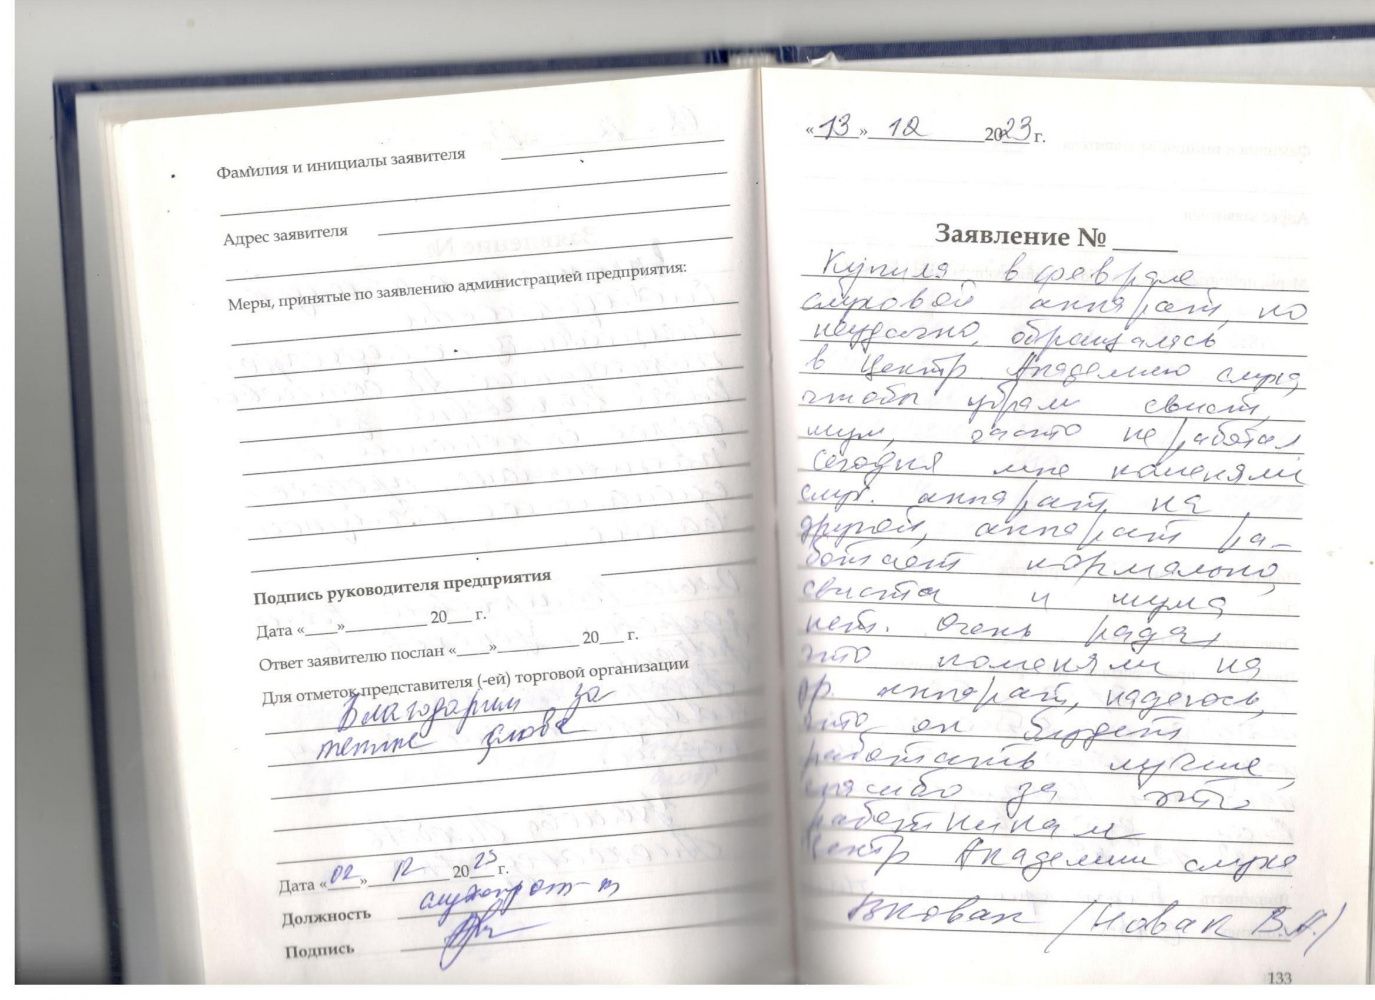 Фамилия и инициалы заявителя
Адрес заявителя
Меры, принятые по заявлению администрацией предприятия:
Подпись руководителя предприятия
Дата «___»__________ 20___ г.
Ответ заявителю послан «____»__________ 20___ г.
Для отметок представителя (-ей) торговой организации
Благодарим за
теплые слова
Дата «02» 12 2023 г.
Должность слухопрот-т
Подпись
«13» 12 2023 г.
Заявление № _____
Купила в феврале
слуховой аппарат, но
неудачно, обращалась
в Центр Академию слуха,
чтобы убрали свист,
шум, часто не работал
сегодня мне поменяли
слух. аппарат на
другой, аппарат ра-
ботает нормально,
свиста и шума
нет. Очень рада,
что поменяли на
др. аппарат, надеюсь,
что он будет
работать лучше,
спасибо за это
работникам
Центр Академии слуха
ВНовак /Новак В.А./
133